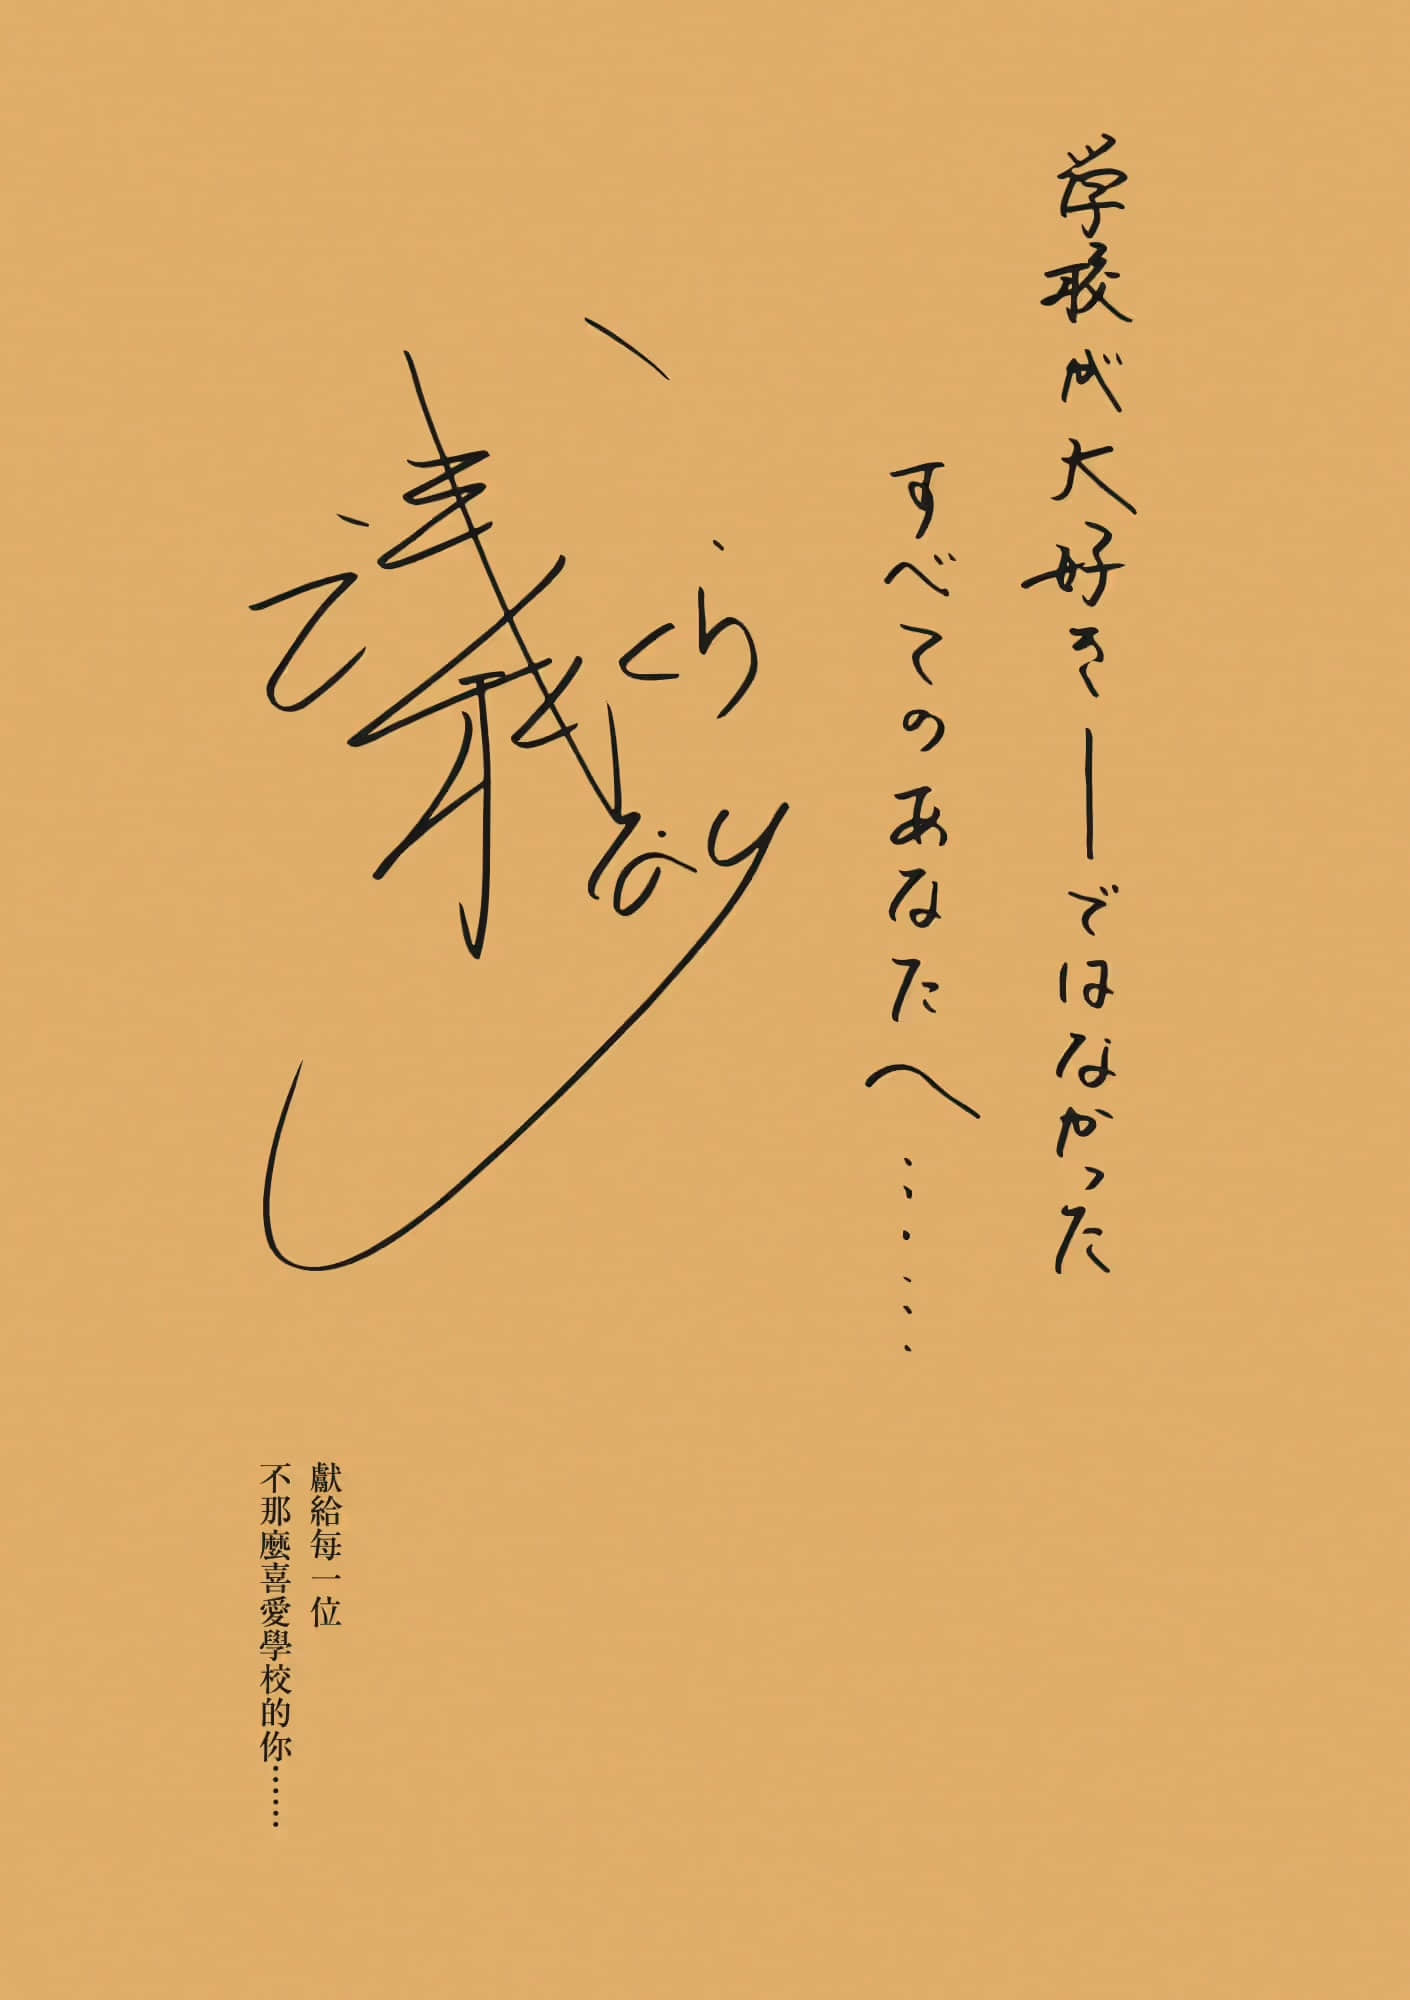 学校が大好きーではなかった
すべてのあなたへ……
獻給每一位
不那麼喜愛學校的你……